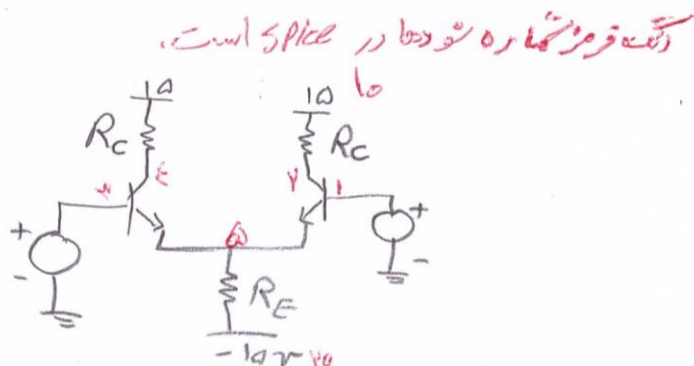 رنگ قرمز شماره نودها در spice است.
۱۰
۱۵
۱۵
R_C
R_C
۳
۴
۲
۱
+
+
-
-
۵
R_E
-۱۵ v ۲۰